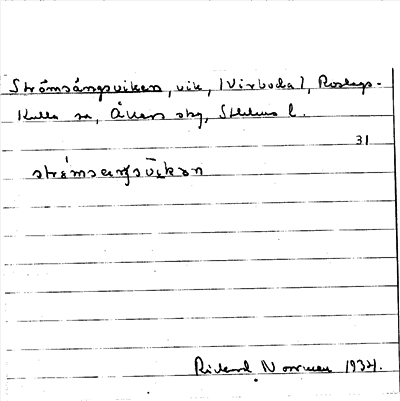 Strömsängsviken, vik, (Virboda), Roslags-
Kulla sn, Åkers skg, Sthlms l.
31
strömsɛŋsvikən
Rickard Norrman 1934.